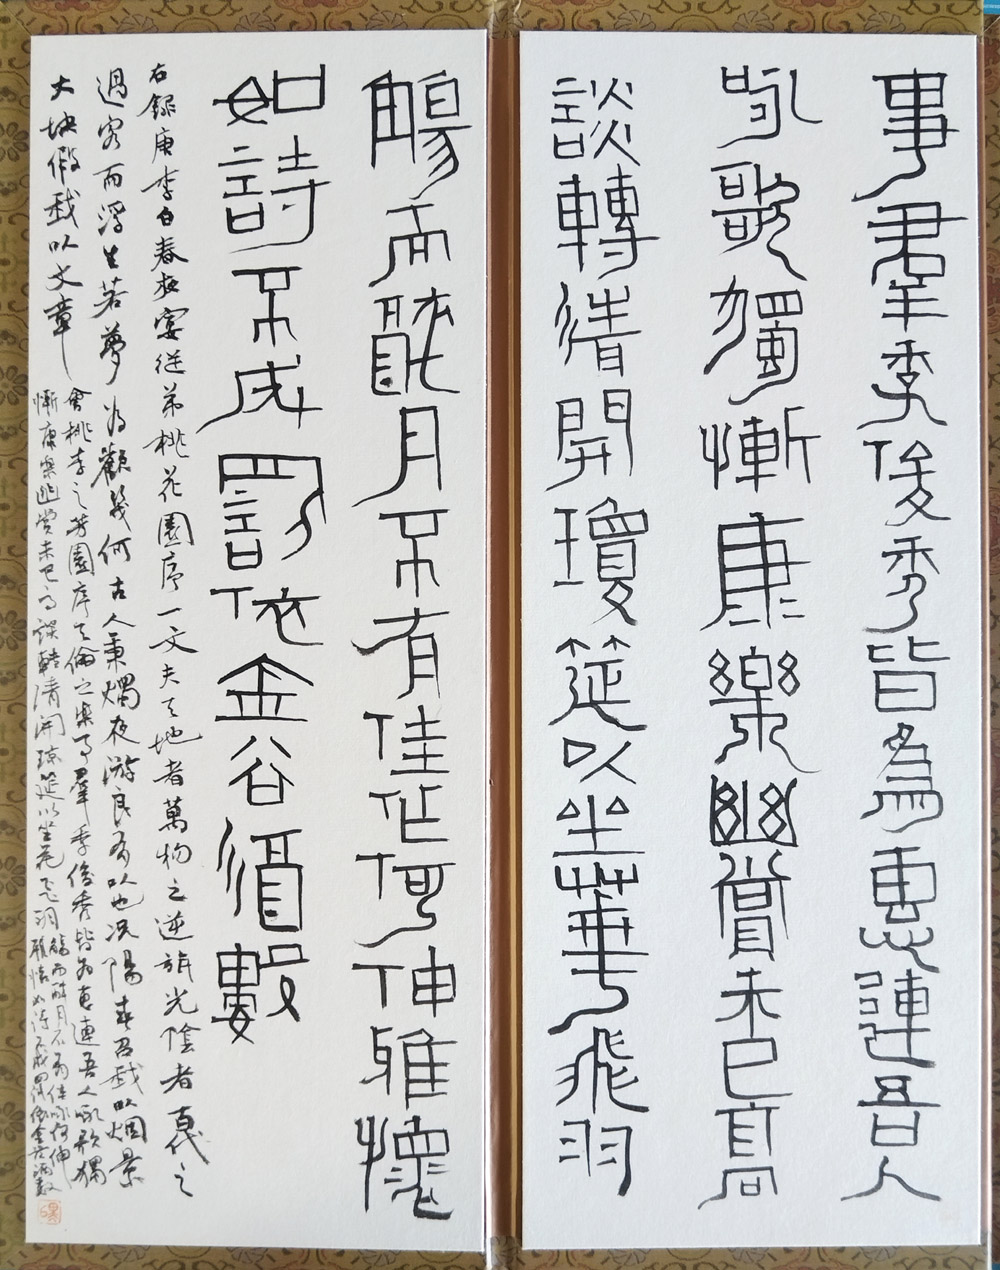 事羣季俊秀皆為惠連吾人
詠歌獨慚康樂幽賞未已高
談轉清開瓊筵以坐華飛羽
觴而醉月不有佳作何伸雅懷
如詩不成罰依金谷酒數
右錄唐李白春夜宴從弟桃花園序一文夫天地者萬物之逆旅光陰者百代之
過客而浮生若夢為歡幾何古人秉燭夜游良有以也況陽春召我以烟景
大块假我以文章
會桃李之芳園序天倫之樂事羣季俊秀皆為惠連吾人詠歌獨
慚康樂幽賞未已高談轉清開瓊筵以坐花飞羽
觴而醉月不有佳作何伸
雅懷如詩不成罰依金谷酒數